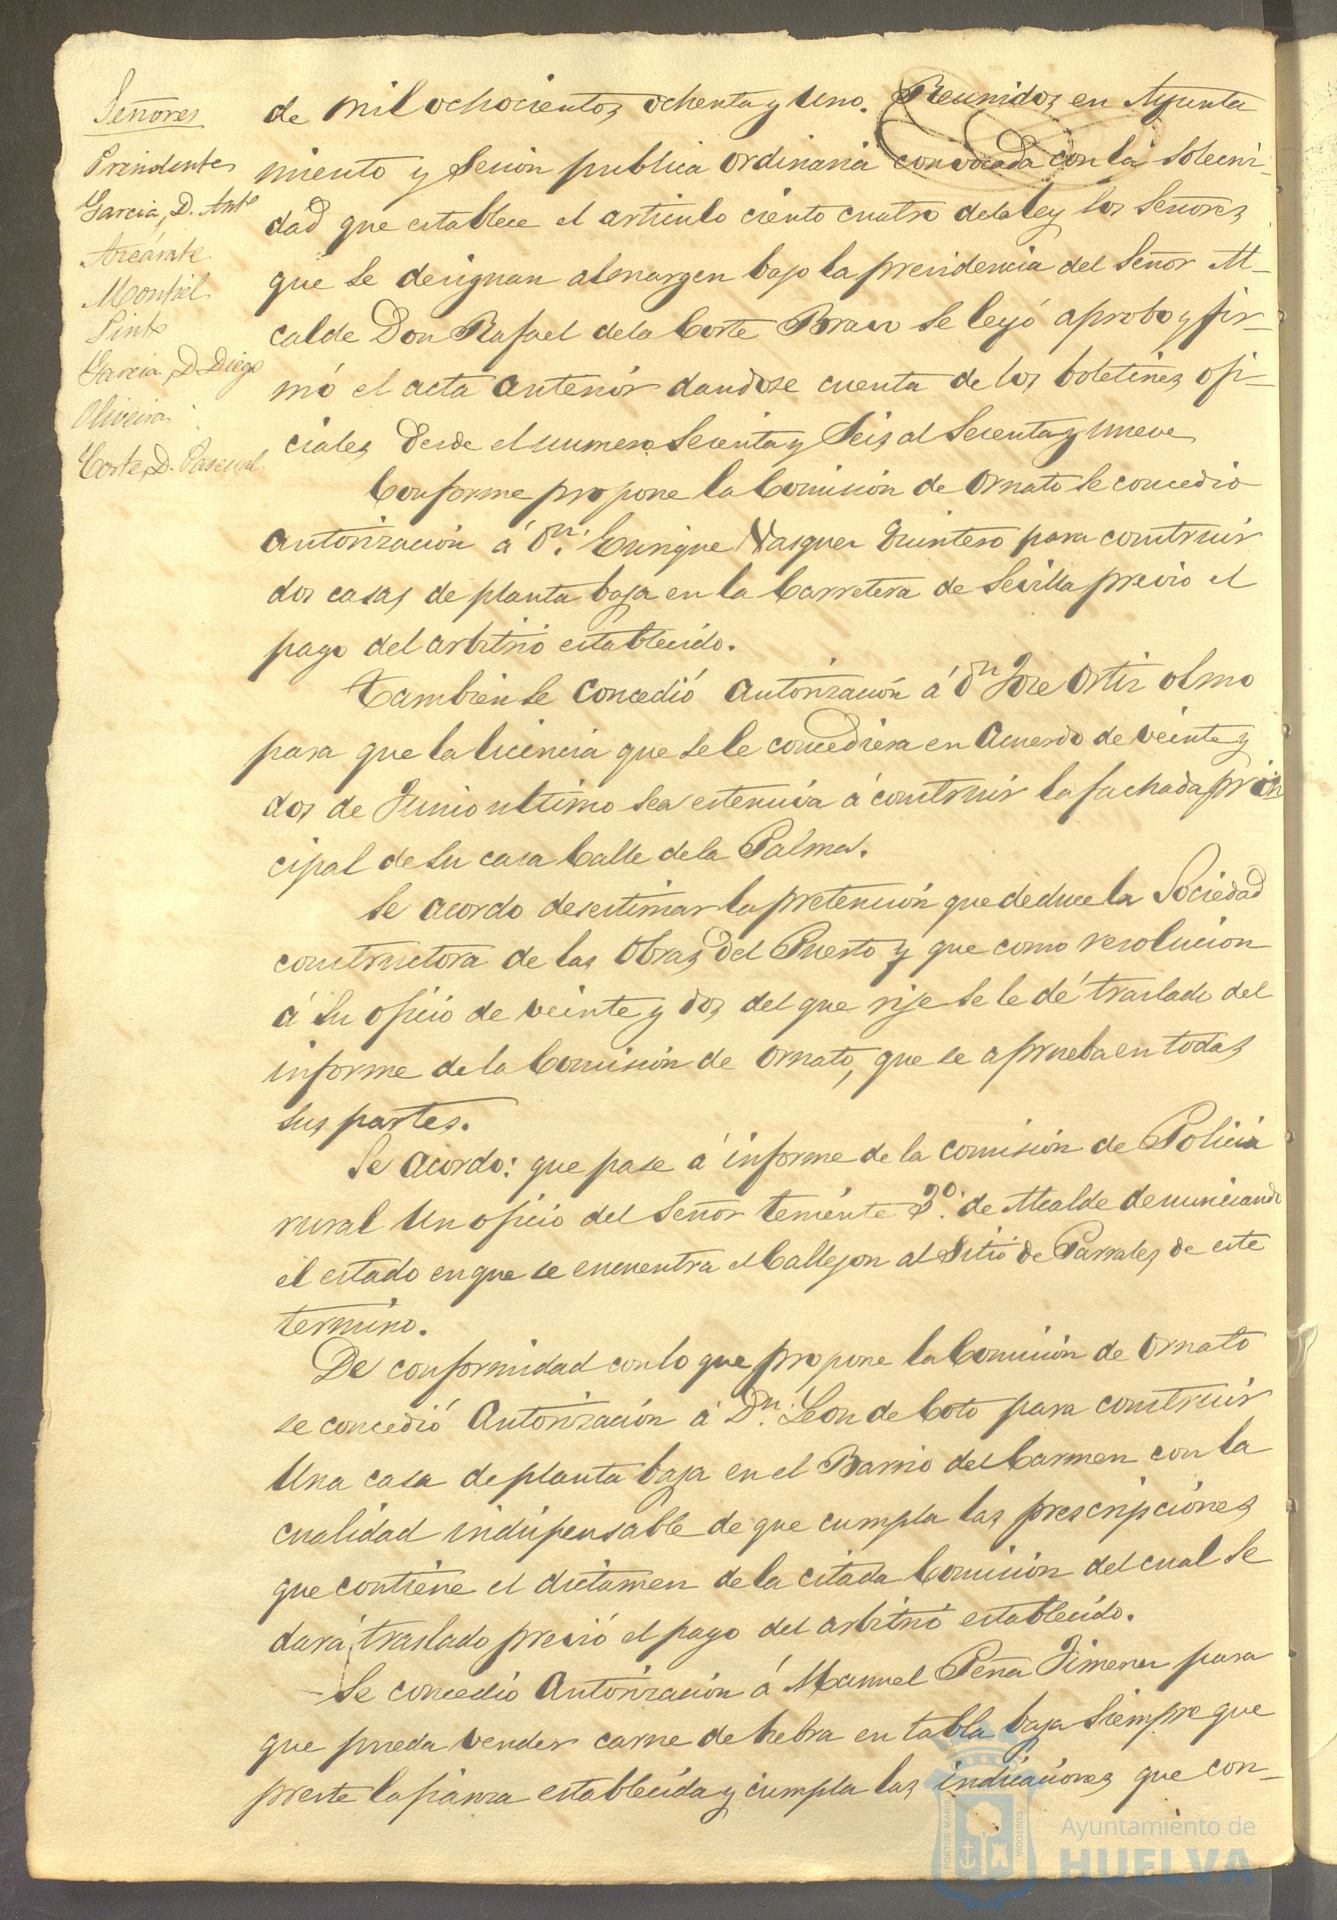 Señores
Presidente
Garcia, D. Antº
Azcárate
Montiel
Pinto
Garcia, D. Diego
Oliveira
Corte, D. Pascual
de mil ochocientos ochenta y uno. Reunidos en Ayunta
miento y Sesion publica ordinaria convocada con la solemni-
dad que establece el articulo ciento cuatro dela ley los Señores
que se designan al margen bajo la presidencia del Señor Al-
calde Don Rafael dela Corte Bravo se leyó aprobo y fir-
mó el acta anterior dandose cuenta de los boletines ofi-
ciales desde el numero Sesenta y Seis al Sesenta y nueve
Conforme propone la Comisión de Ornato se concedio
autorización á Dn. Enrique Vasquez Quintero para construir
dos casas de planta baja en la Carretera de Sevilla previo el
pago del arbitrio establecido.
Tambien se concedió autorización á Dn Jose Ortiz olmo
para que la licencia que se le concediera en acuerdo de veinte y
dos de Junio ultimo sea estensiva á construir la fachada prin
cipal de su casa Calle dela Palma.
Se acordo desestimar la pretención que deduce la Sociedad
constructora de las Obras del Puerto y que como resolucion
á su oficio de veinte y dos del que rije se le dé traslado del
informe de la Comisión de Ornato, que se aprueba en todas
sus partes.
Se acordo: que pase á informe de la comisión de Policia
rural un oficio del Señor teniente 3º. de Alcalde denunciando
el estado en que se encuentra el Callejon al Sitio de Parrales de este
termino.
De conformidad con lo que propone la Comisión de Ornato
se concedió autorización á Dn. Leon de Coto para construir
una casa de planta baja en el Barrio del Carmen con la
cualidad indispensable de que cumpla las prescripciones
que contiene el dictamen de la citada Comisión del cual se
dará traslado previó el pago del arbitrio establecido.
Se concedió autorización á Manuel Peña Jimenez para
que pueda vender carne de hebra en tabla baja siempre que
preste la fianza establecida y cumpla las indicaciones que con-
PORTUS MARIS
CUSTODIA
Ayuntamiento de
HUELVA